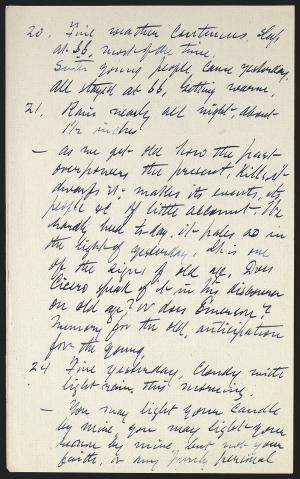 20. Fine weather continues. Slept
at 66, most of the time.
Smith young people came yesterday,
all stayed at 66, getting warm.
21. Rain nearly all night, about
1½ inches
— As we get old how the past
overpowers the present, kills it -
dwarfs it; makes its events, its
people &c of little account - We
hardly see today, it pales so in
the light of yesterday. It is one
of the signs of old age. Does
Cicero speak of it in his discourse
on old age? or does Emerson?
Memory for the old, anticipation
for the young.
24 Fine yesterday, Cloudy with
light rain this morning.
— You may light your candle
by mine, you may light your
reason by mine, but not your
faith, or any purely personal